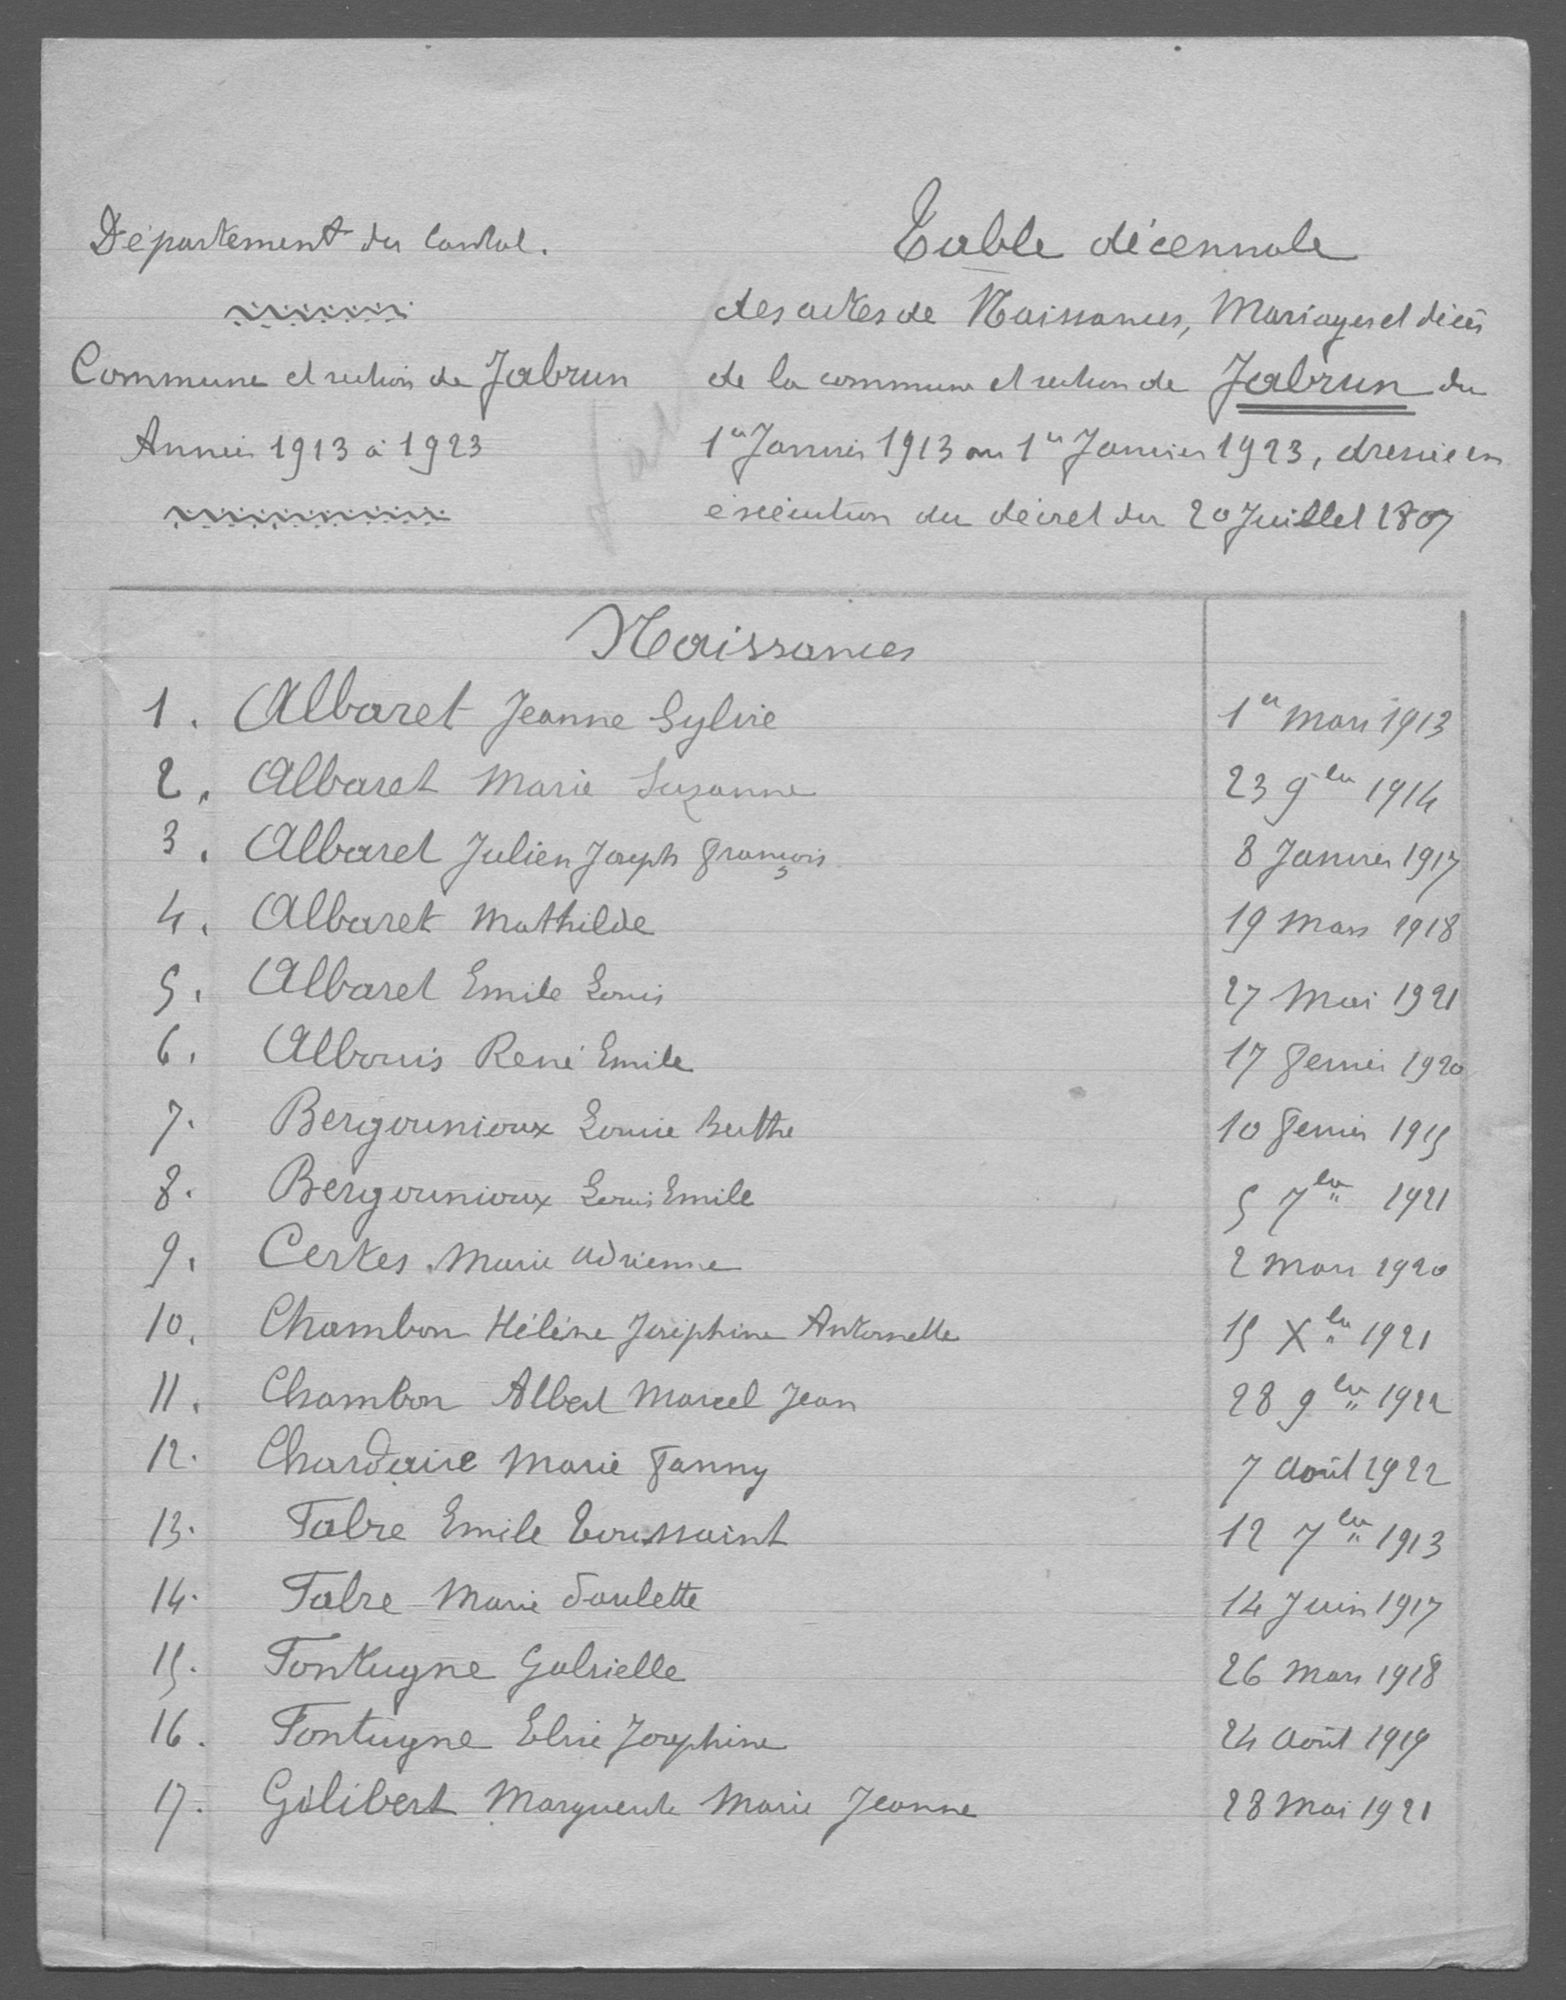 Département du Cantal.
Commune et section de Jabrun
Années 1913 à 1923
Table décennale
des actes de Naissances, Mariages et décès
de la commune et section de Jabrun du
1er Janvier 1913 au 1er Janvier 1923, dressée en
exécution du décret du 20 Juillet 1807
Naissances
1. Albaret Jeanne Sylvie 1er Mars 1913
2. Albaret Marie Suzanne 23 9bre 1914
3. Albaret Julien Joseph François 8 Janvier 1917
4. Albaret Mathilde 19 Mars 1918
5. Albaret Emile Louis 27 Mai 1921
6. Albouis René Emile 17 Février 1920
7. Bergounioux Louise Berthe 10 Février 1915
8. Bergounioux Louis Emile 5 7bre 1921
9. Certes Marie Adrienne 2 Mars 1920
10. Chambon Hélène Joséphine Antoinette 15 Xbre 1921
11. Chambon Albert Marcel Jean 28 9bre 1922
12. Chardaire Marie Fanny 7 Août 1922
13. Fabre Emile Toussaint 12 7bre 1913
14. Fabre Marie Paulette 14 Juin 1917
15. Fontugne Gabrielle 26 Mars 1918
16. Fontugne Elise Josephine 24 Août 1919
17. Gilibert Marguerite Marie Jeanne 28 Mai 1921